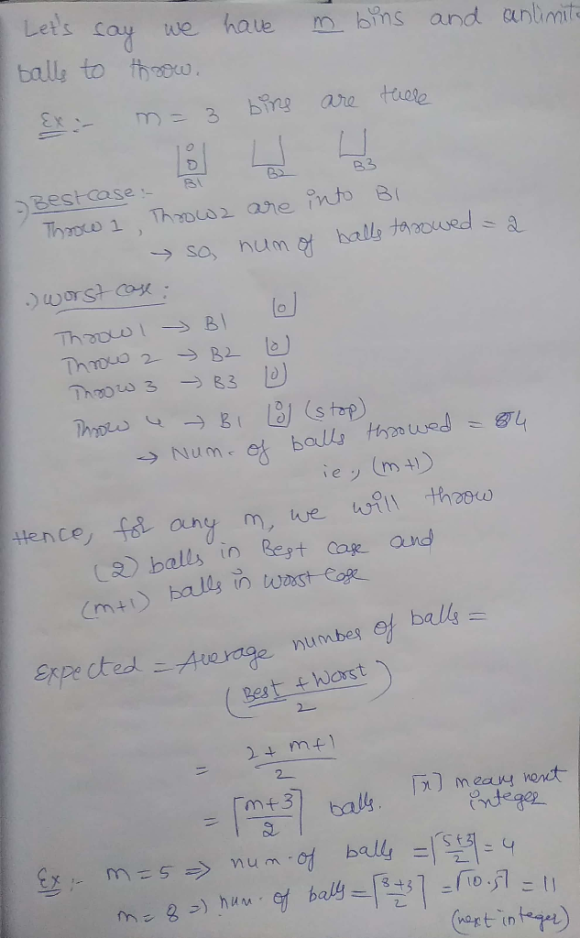 Let's say we have m bins and unlimite
balls to throw.
Ex :- m = 3 bins are there
B1 B2 B3
:) Best case :-
Throw 1, Throw 2 are into B1
→ so, num of balls throwed = 2
:) worst case :
Throw 1 → B1
Throw 2 → B2
Throw 3 → B3
Throw 4 → B1 (stop)
→ Num. of balls throwed = 4
ie., (m+1)
Hence, for any m, we will throw
(2) balls in Best case and
(m+1) balls in worst case
Expected = Average number of balls =
(Best + Worst / 2)
= 2 + m+1 / 2
= ⌈m+3 / 2⌉ balls. ⌈x⌉ means next
integer
Ex :- m = 5 ⇒ num. of balls = ⌈5+3 / 2⌉ = 4
m = 8 ⇒ num. of balls = ⌈8+3 / 2⌉ = ⌈10.5⌉ = 11
(next integer)